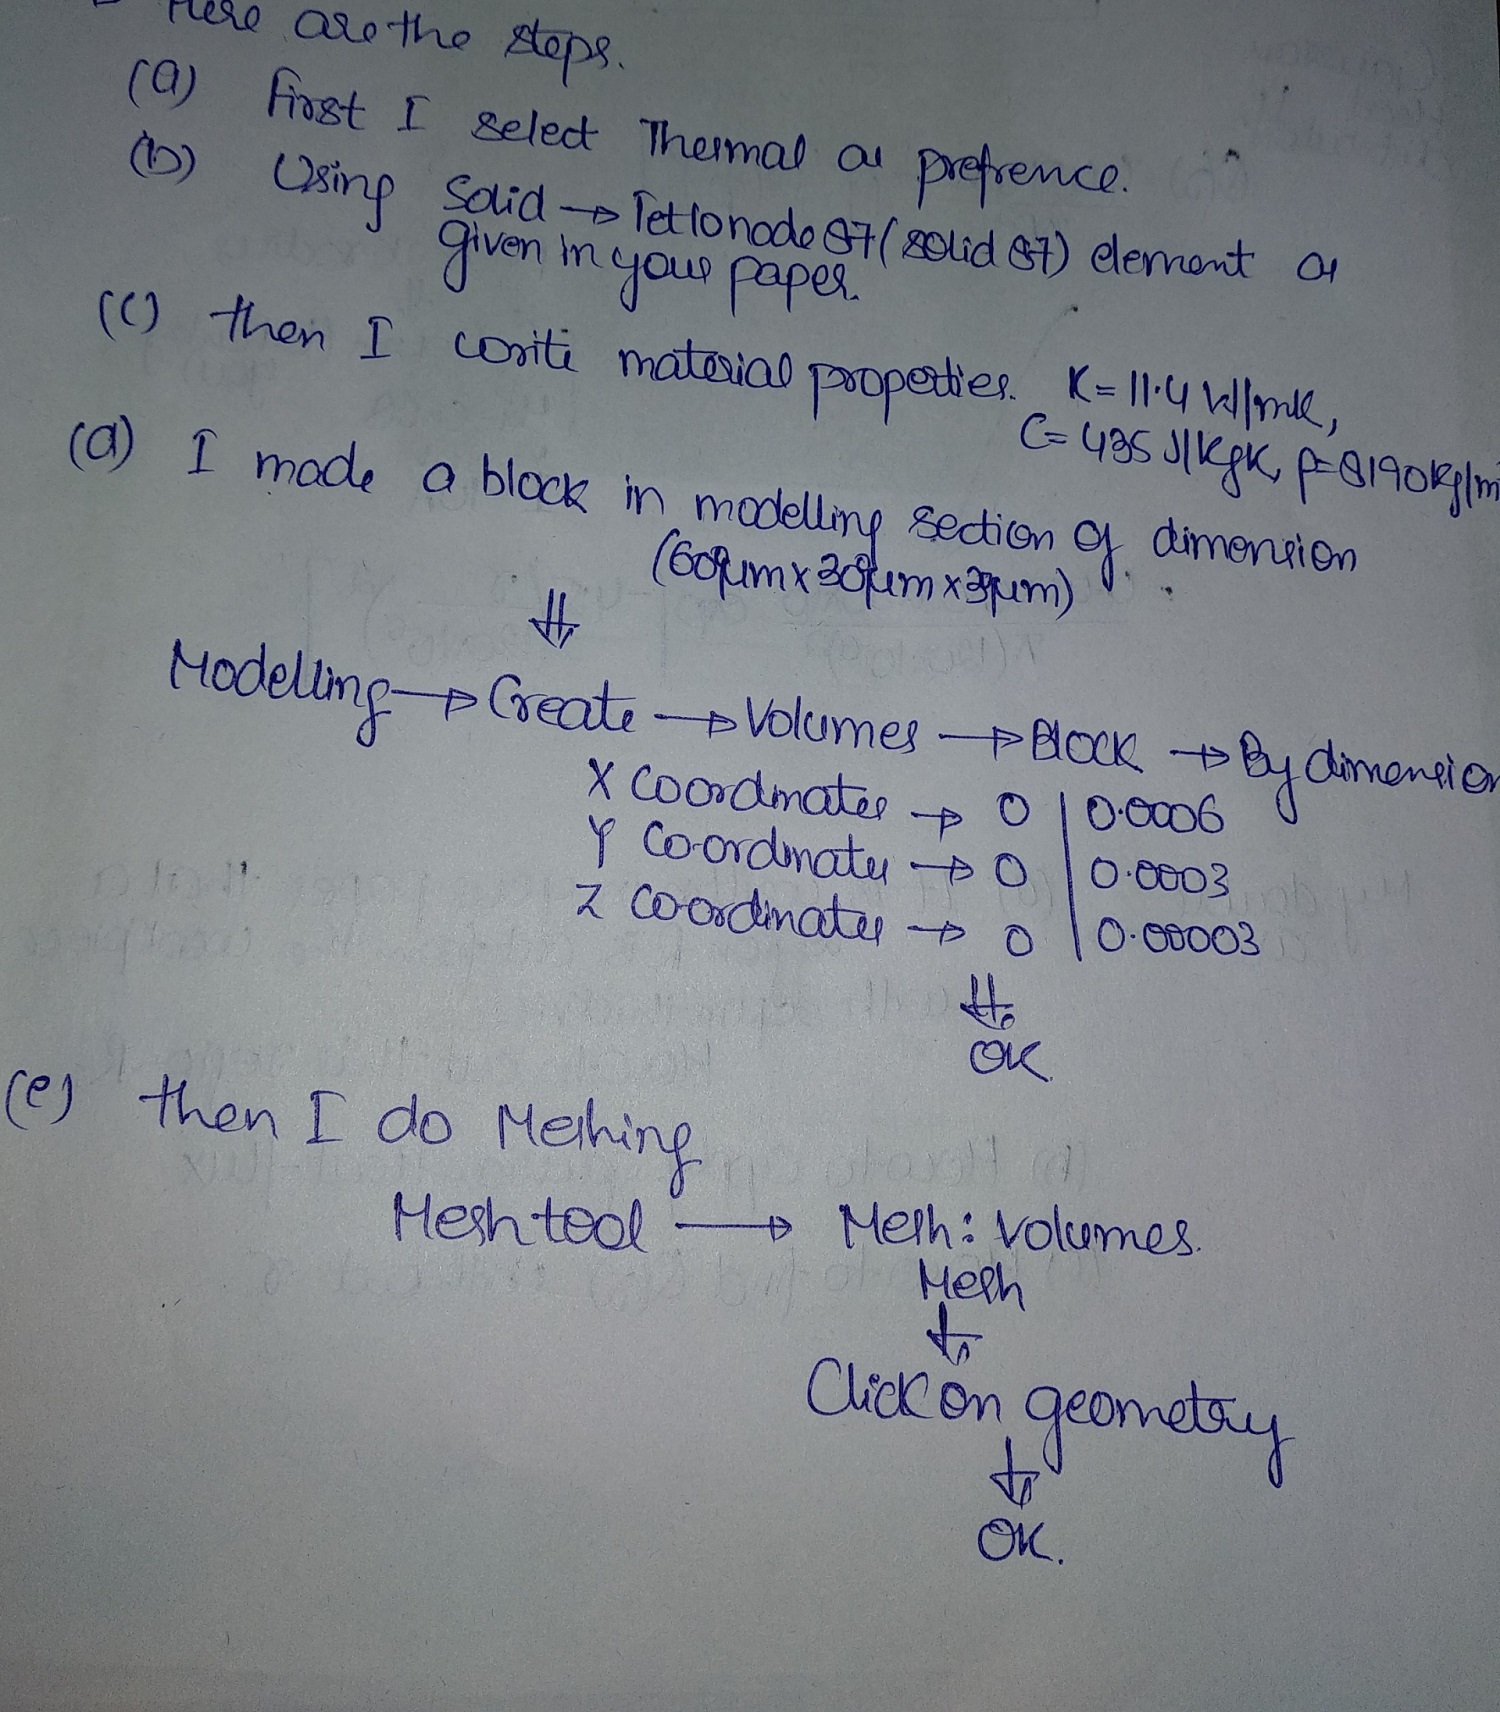 Here are the steps.
(a) First I select Thermal as prefrence.
(b) Using Solid → Tet10node 87 (solid 87) element as
given in your paper.
(c) then I write material properties. K = 11.4 W/mK,
C = 435 J/KgK, ρ = 8190 Kg/m
(d) I made a block in modelling section of dimension
(600μm x 300μm x 30μm)
⇓
Modelling → Create → Volumes → Block → By dimension
X Coordinates → 0 | 0.0006
Y Co-ordinates → 0 | 0.0003
Z Coordinates → 0 | 0.00003
⇓
OK
(e) then I do Meshing
Mesh tool → Mesh: Volumes.
Mesh
↓
Click on geometry
↓
OK.